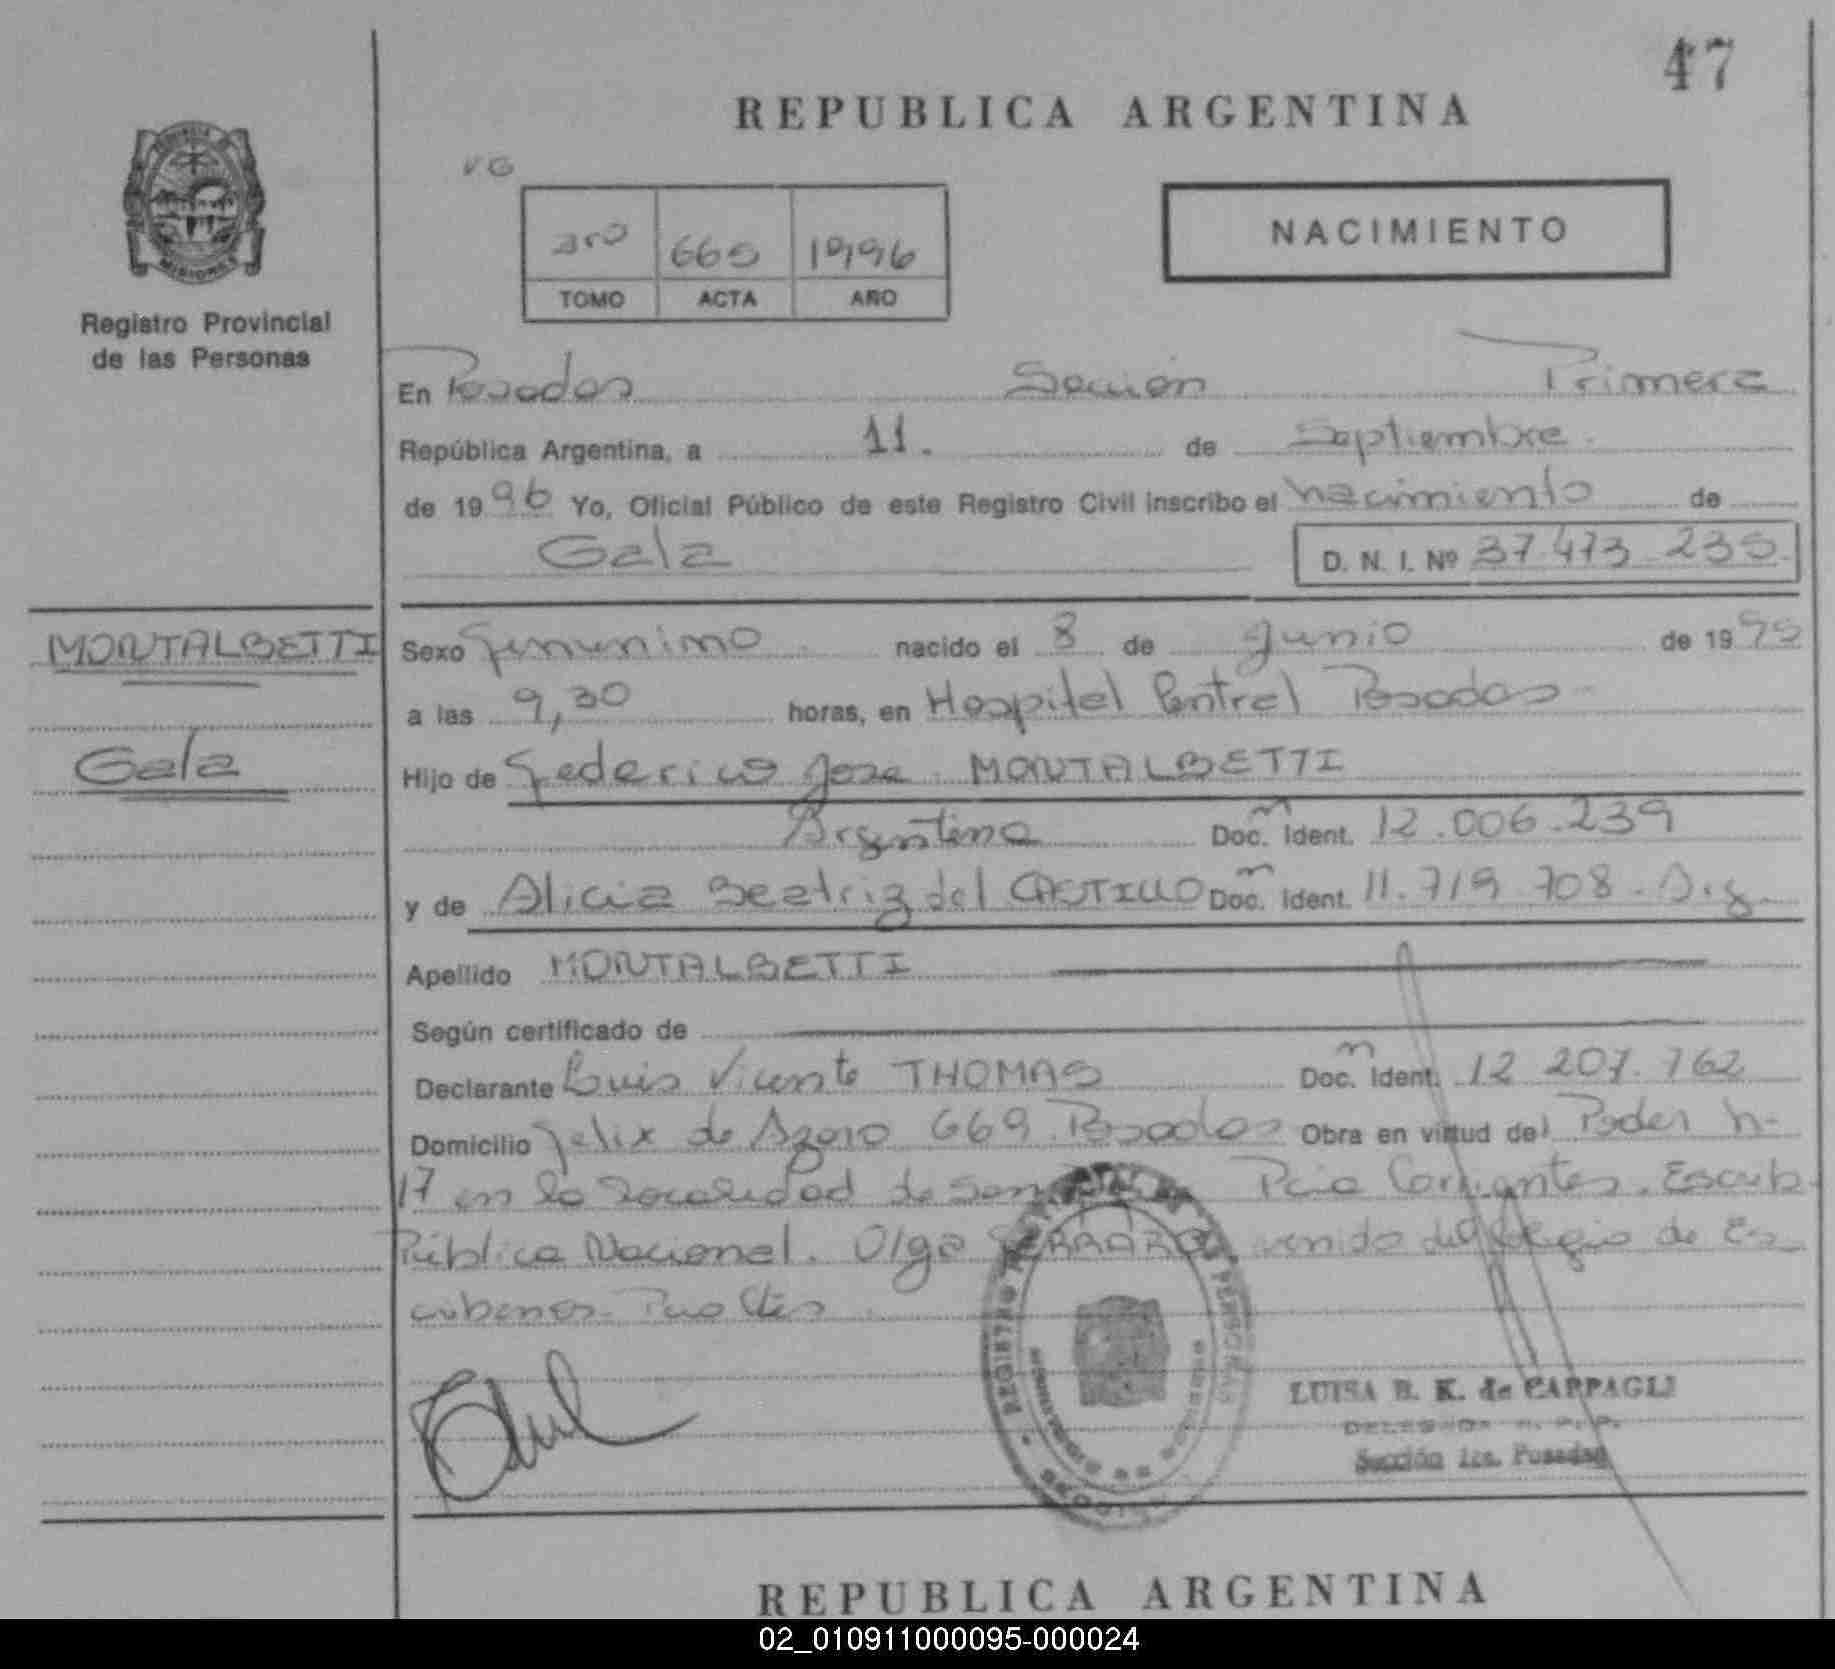 47
REPUBLICA ARGENTINA
VG
NACIMIENTO
3ro 665 1996
TOMO ACTA AÑO
PROVINCIA
MISIONES
Registro Provincial
de las Personas
En Posadas Sección Primera
República Argentina, a 11. de Septiembre.
de 1996 Yo, Oficial Público de este Registro Civil inscribo el nacimiento de
Gala D. N. I. Nº 37.473.235
MONTALBETTI
Gala
Sexo femenino nacido el 8 de Junio de 1995
a las 9,30 horas, en Hospital Central Posadas
Hijo de Federico Jose MONTALBETTI
Argentino Doc. Ident. 12.006.239
y de Alicia Beatriz del CASTILLO Doc. Ident. 11.719.708. Arg.
Apellido MONTALBETTI
Según certificado de
Declarante Luis Vicente THOMAS Doc. Ident. 12 207.762
Domicilio Felix de Azara 669 Posadas Obra en virtud del Poder n-
17 en la localidad de Pcia Corrientes. Escrib.
Pública Nacional. Olga de Es-
cribanos. Ctes
REGISTRO PERSONAS
LUISA B. K. de CAPPAGLI
DELEGADA R. P. P.
Sección 1ra. Posadas
REPUBLICA ARGENTINA
02_010911000095-000024